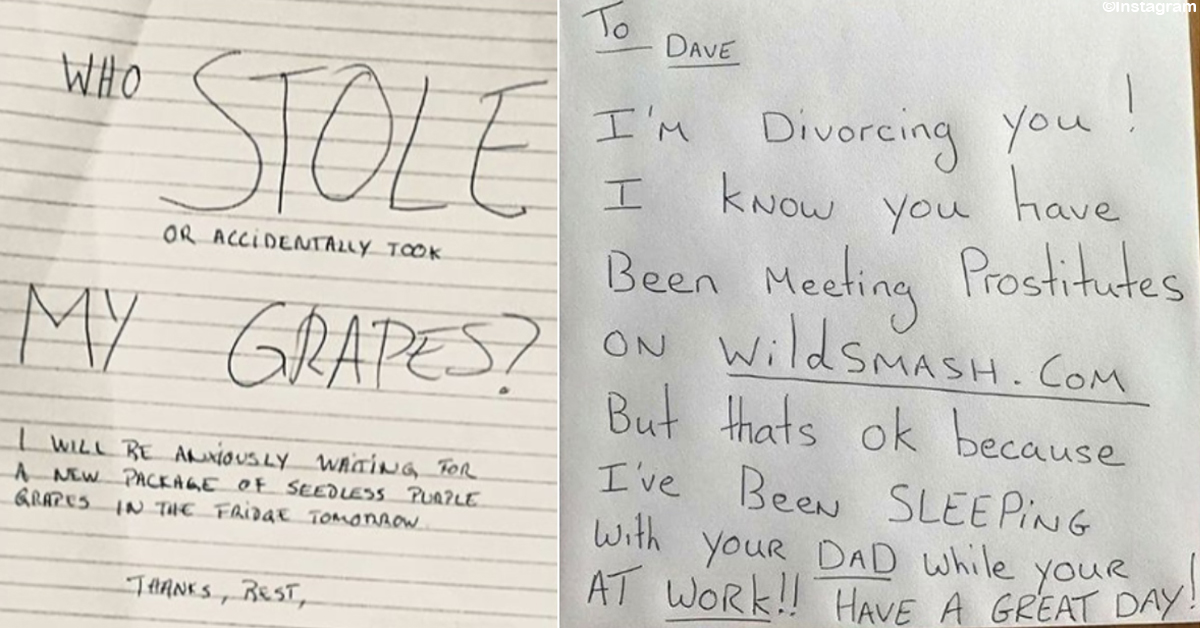 WHO STOLE
OR ACCIDENTALLY TOOK
MY GRAPES?
I WILL BE ANXIOUSLY WAITING FOR
A NEW PACKAGE OF SEEDLESS PURPLE
GRAPES IN THE FRIDGE TOMORROW
THANKS, BEST,
©Instagram
To DAVE
I'M Divorcing you!
I KNOW you have
Been Meeting Prostitutes
ON WildSMASH.COM
But thats ok because
I've BEEN SLEEPiNG
With YOUR DAD While your
AT WORK!! HAVE A GREAT DAY!